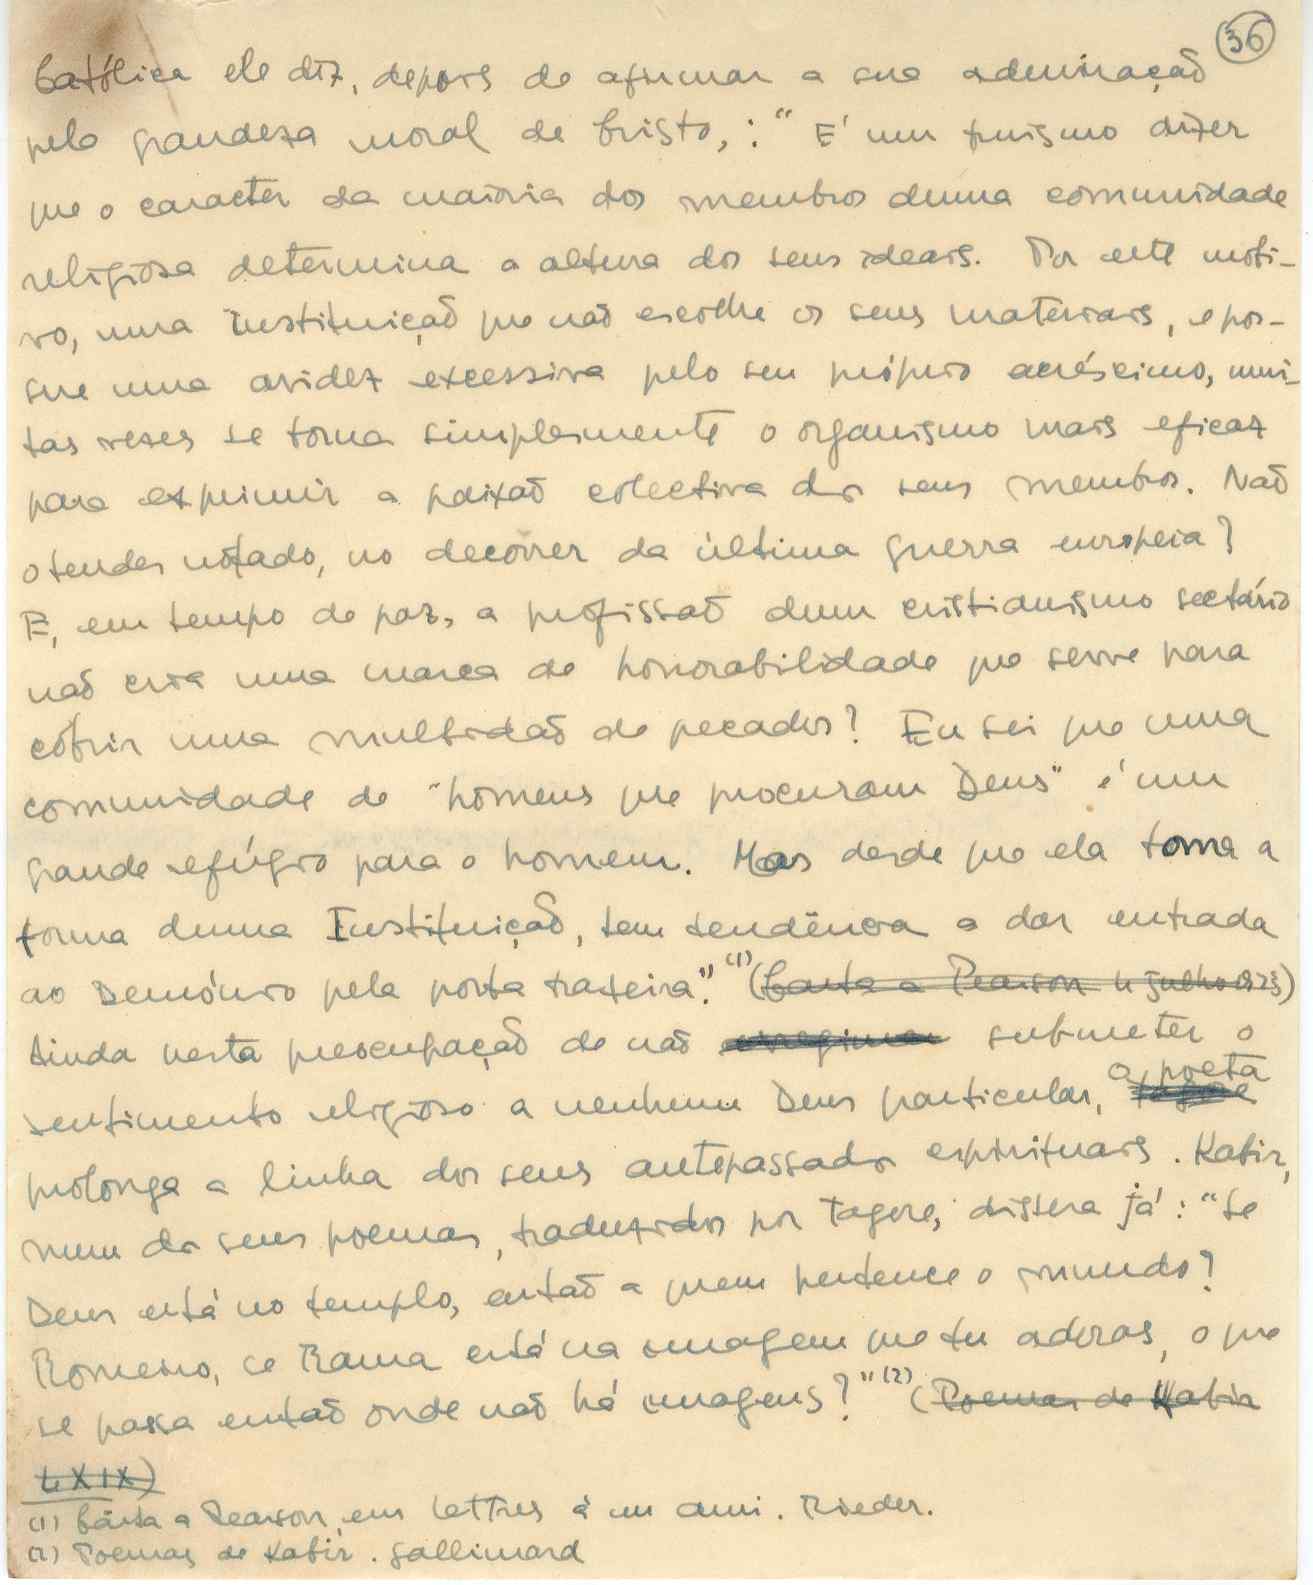 36
Católica ele diz, depois de afirmar a sua admiração
pela grandeza moral de Cristo, : " E' um truismo dizer
que o caracter da maioria dos membros duma comunidade
religiosa determina a altura dos seus ideais. Por este moti-
vo, uma Instituição que não escolhe os seus materiais, e pos-
sue uma avidez excessiva pelo seu próprio acréscimo, mui-
tas vezes se torna simplesmente o organismo mais eficaz
para exprimir a paixão colectiva dos seus membros. Não
o tendes nótado, no decorrer da última guerra europeia?
E, em tempo de paz, a profissão dum cristianismo sectário
não cria uma marca de honorabilidade que serve para
cobrir uma multidão de pecados? Eu sei que uma
comunidade de "homens que procuram Deus" é um
grande refúgio para o homem. Mas desde que ela toma a
forma duma Instituição, tem tendência a dar entrada
ao Demónio pela porta trazeira". (1) (Carta a Pearson 4 julho 1923)
Ainda nesta preocupação de não submeter o
sentimento religioso a nenhum Deus particular, o poeta
prolonga a linha dos seus antepassados espirituais. Kabir,
num dos seus poemas, traduzidos por Tagore, dissera já: "Se
Deus está no templo, então a quem pertence o mundo?
Romeiro, se Rama está na imagem que tu adoras, o que
se passa então onde não há imagens?" (2) (Poemas de Kabir
LXIX)
(1) Carta a Pearson, em Lettres à un ami. Rieder.
(2) Poemas de Kabir. Gallimard